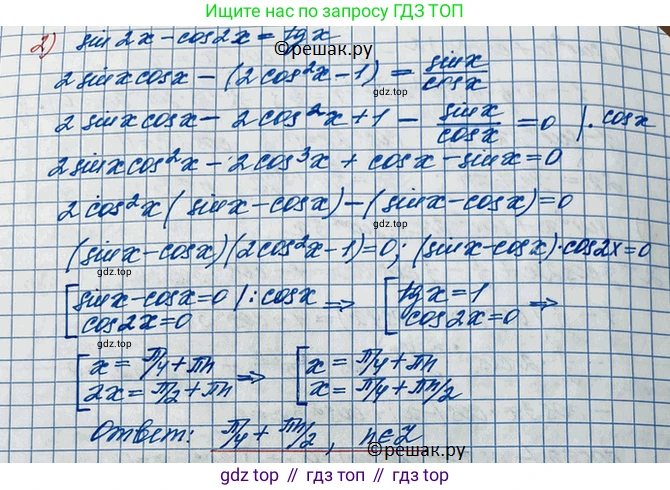 Ищите нас по запросу ГДЗ ТОП
2) sin 2x - cos 2x = tg x
©reшак.ру
2 sin x cos x - (2 cos² x - 1) = sin x / cos x
гдз top
2 sin x cos x - 2 cos² x + 1 - sin x / cos x = 0 | · cos x
гдз top
2 sin x cos² x - 2 cos³ x + cos x - sin x = 0
2 cos² x (sin x - cos x) - (sin x - cos x) = 0
гдз top
(sin x - cos x)(2 cos² x - 1) = 0; (sin x - cos x) · cos 2x = 0
[ sin x - cos x = 0 | : cos x ⇒ [ tg x = 1
cos 2x = 0 cos 2x = 0 ⇒
гдз top
[ x = π/4 + πn ⇒ [ x = π/4 + πn
2x = π/2 + πn x = π/4 + πn/2
Ответ: π/4 + πn/2, n ∈ Z
©reшак.ру
гдз top
гдзтоп // гдз топ // gdz top